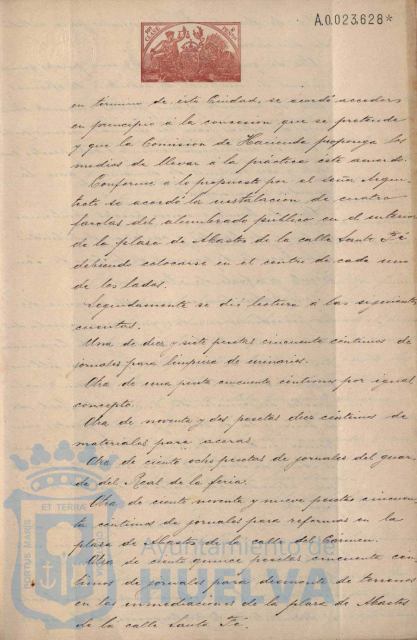 A.0.023.628*
en término de esta Ciudad, se acordó acceder
en principio á la concesion que se pretende
y que la Comision de Hacienda proponga los
medios de llevar á la práctica este acuerdo.
Conforme á lo propuesto por el señor Arqui-
tecto se acordó la instalacion de cuatro
farolas del alumbrado público en el interior
de la plaza de Abastos de la calle Santo Fé
debiendo colocarse en el centro de cada uno
de los lados.
Seguidamente se dió lectura á las siguientes
cuentas.
Una de diez y siete pesetas cincuenta céntimos de
jornales para limpieza de urinarios.
Otra de una peseta cincuenta céntimos por igual
concepto.
Otra de noventa y dos pesetas diez céntimos de
materiales para aceras.
Otra de ciento ocho pesetas de jornales del guar-
da del Real de la feria.
Otra de ciento noventa y nueve pesetas cincuen-
ta céntimos de jornales para reformas en la
plaza de Abastos de la calle del Carmen.
Otra de ciento quince pesetas cincuenta cén-
timos de jornales para desmonte de terrenos
en las inmediaciones de la plaza de Abastos
de la calle Santa Fé.
PORTUS MARIS
ET TERRÆ
Ayuntamiento de
HUELVA